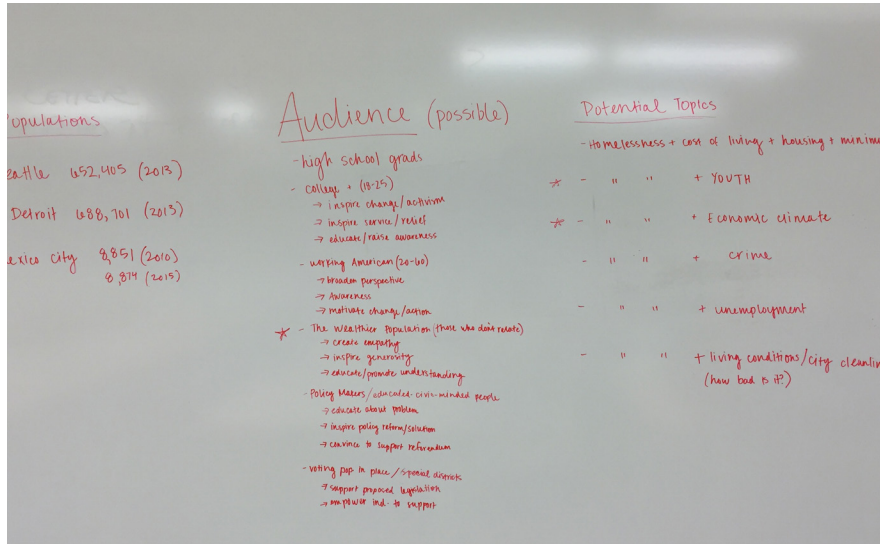 Populations
eattle 652,405 (2013)
Detroit 688,701 (2013)
exico city 8,851 (2010)
8,874 (2015)
Audience (possible)
-high school grads
- College + (18-25)
→ inspire change/activism
→ inspire service/relief
→ educate/raise awareness
- Working American (20-60)
→ broaden perspective
→ Awareness
→ motivate change/action
☆ - The Wealthier Population (those who don't relate)
→ create empathy
→ inspire generosity
→ educate/promote understanding
- Policy Makers/educated-civic-minded people
→ educate about problem
→ inspire policy reform/solution
→ convince to support referendum
- voting pop in place/special districts
→ support proposed legislation
→ empower ind. to support
Potential Topics
- Homelessness + cost of living + housing + minimu
☆ - " " + YOUTH
☆ - " " + Economic climate
- " " + crime
- " " + unemployment
- " " + living conditions/city cleanlin
(how bad is it?)